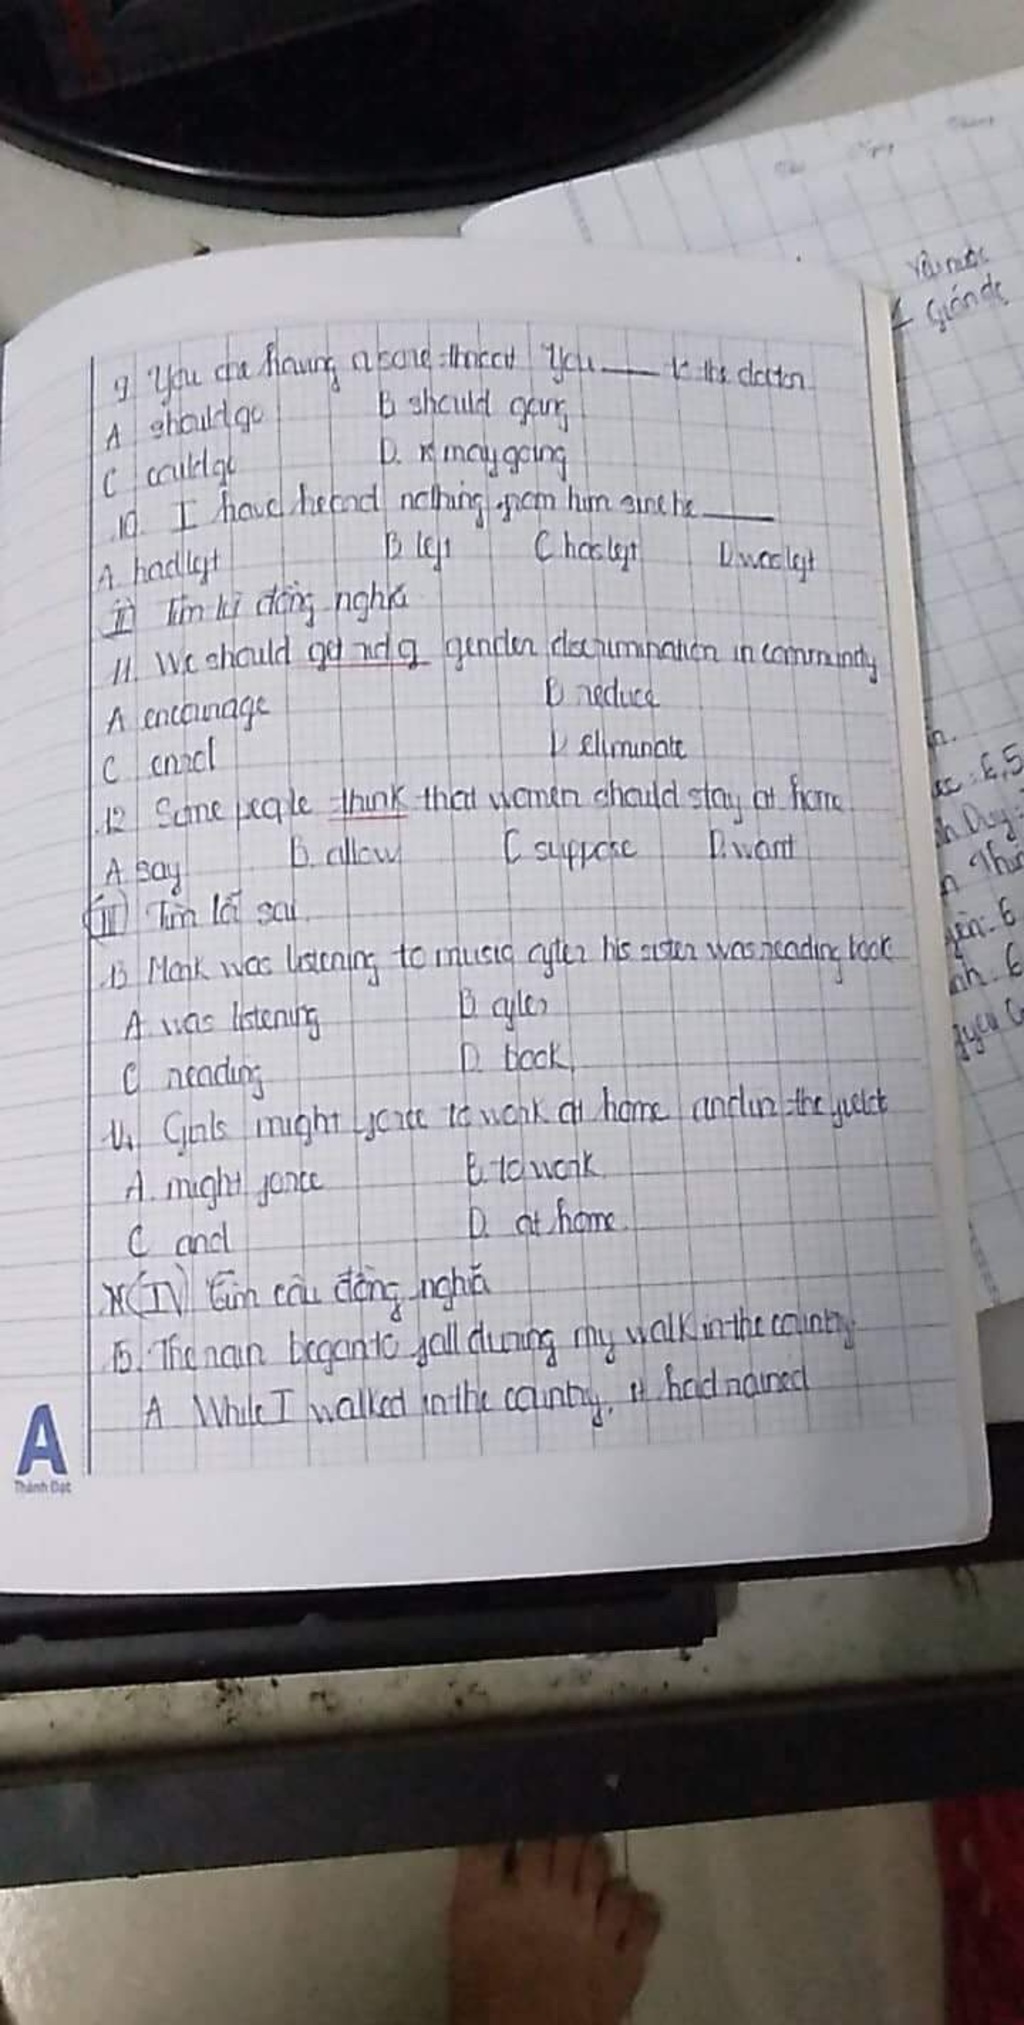 9 You are having a sore throat You ___ to the doctor
A should go B should going
C could go D. may going
10. I have heard nothing from him since he ___
A. had left B left C has left D was left
II) Tìm từ đồng nghĩa
11. We should get rid of gender discrimination in community
A encourage B reduce
C enrol D eliminate
12 Some people think that women should stay at home
A say B. allow C suppose D. want
(III) Tìm lỗi sai
13 Mark was listening to music after his sister was reading book
A was listening B after
C reading D. book
14. Girls might force to work at home and in the field
A. might force B. to work
C and D. at home
(IV) Tìm câu đồng nghĩa
15. The rain began to fall during my walk in the country
A While I walked in the country, it had rained
A
Thành Đạt
Yêu nước
Gián đc
6,5
Duy
6
6